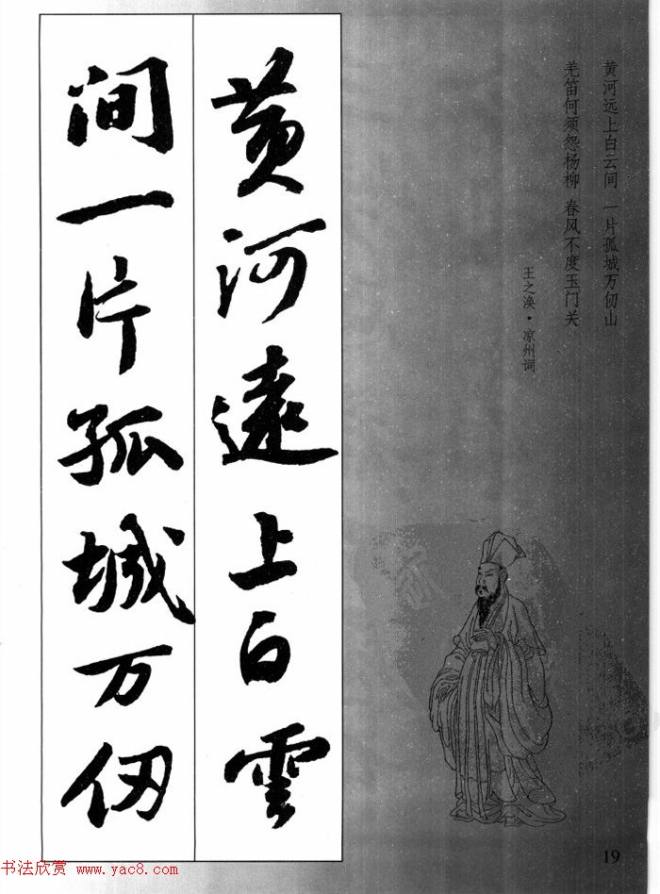 黄河远上白云间 一片孤城万仞山
羌笛何须怨杨柳 春风不度玉门关
王之涣·凉州词
黄河遠上白雲
间一片孤城万仞
19
书法欣赏 www.yac8.com